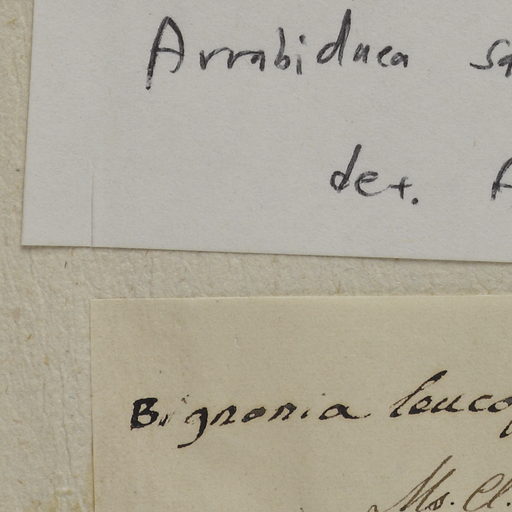 Arrabidaea sa
det. A
Bignonia leuco
Ms. Cl.